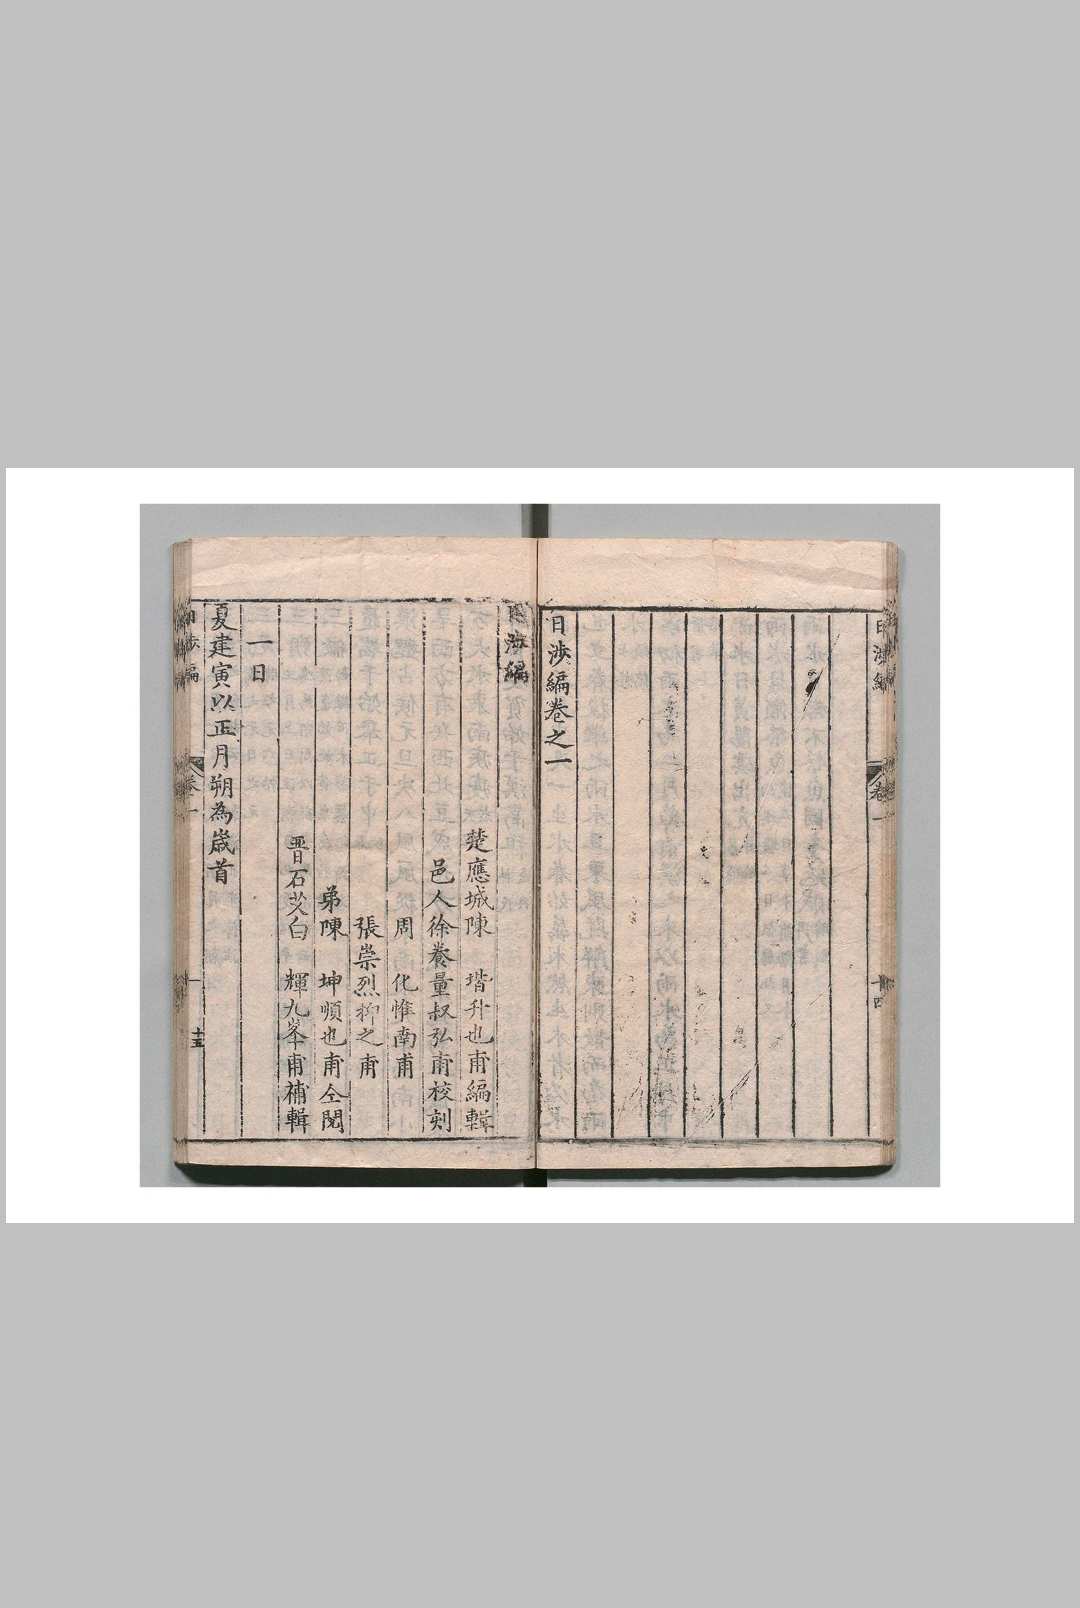 日涉編
卷一
十四
日涉編卷之一
日涉編
楚應城陳 堦升也甫編輯
邑人徐養量叔弘甫校刻
周 化惟南甫
張崇烈抑之甫
弟陳 坤順也甫仝閱
晋石艾白 輝九峯甫補輯
一日
夏建寅以正月朔為歲首
日涉編
卷一
一
十五